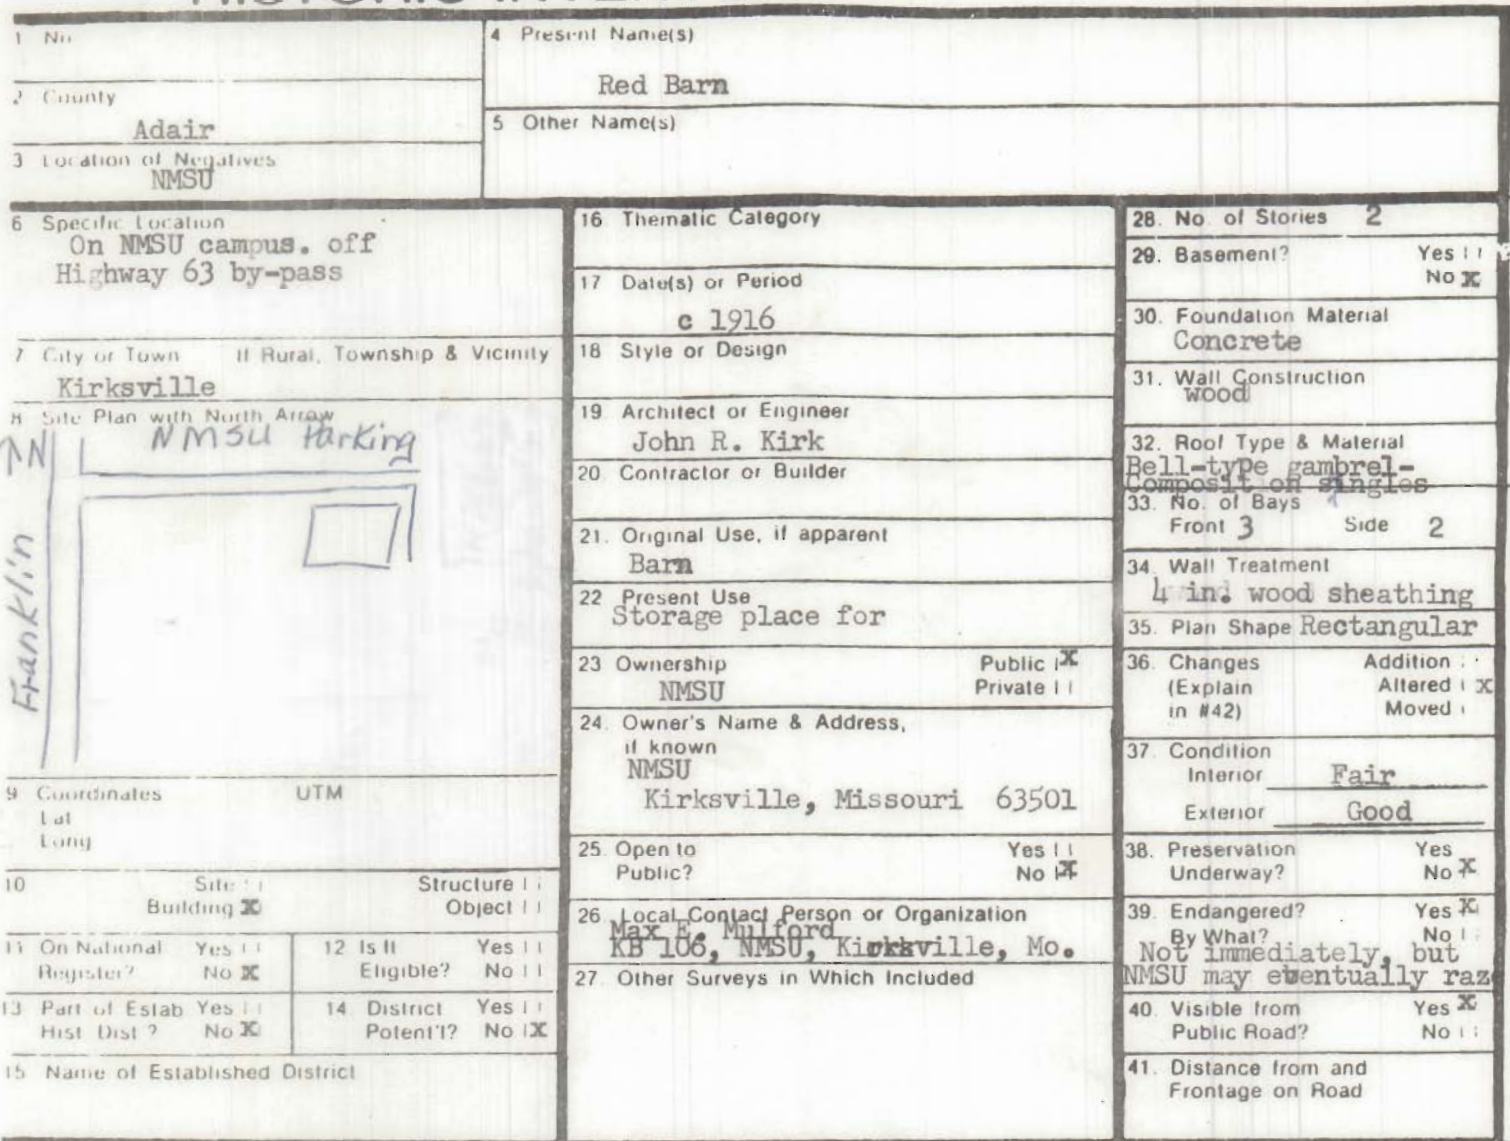 1 No.
4 Present Name(s)
Red Barn
2 County
Adair
5 Other Name(s)
3 Location of Negatives
NMSU
6 Specific Location
On NMSU campus. off
Highway 63 by-pass
7 City or Town If Rural, Township & Vicinity
Kirksville
8 Site Plan with North Arrow
N
NMSU Parking
Franklin
9 Coordinates UTM
Lat
Long
10 Site Structure
Building X Object
11 On National Yes
Register? No X
12 Is It Yes
Eligible? No
13 Part of Estab Yes
Hist Dist? No X
14 District Yes
Potent'l? No X
15 Name of Established District
16 Thematic Category
17 Date(s) or Period
c 1916
18 Style or Design
19 Architect or Engineer
John R. Kirk
20. Contractor or Builder
21. Original Use, if apparent
Barn
22 Present Use
Storage place for
23 Ownership Public X
NMSU Private
24. Owner's Name & Address,
if known
NMSU
Kirksville, Missouri 63501
25. Open to Yes
Public? No X
26. Local Contact Person or Organization
Max E. Mulford
KB 106, NMSU, Kirksville, Mo.
27 Other Surveys in Which Included
28. No. of Stories 2
29. Basement? Yes
No X
30. Foundation Material
Concrete
31. Wall Construction
wood
32. Roof Type & Material
Bell-type gambrel-
Composition singles
33. No. of Bays
Front 3 Side 2
34. Wall Treatment
4 in. wood sheathing
35. Plan Shape Rectangular
36. Changes Addition
(Explain Altered X
in #42) Moved
37. Condition
Interior Fair
Exterior Good
38. Preservation Yes
Underway? No X
39. Endangered? Yes X
By What? No
Not immediately, but
NMSU may eventually raze
40. Visible from Yes X
Public Road? No
41. Distance from and
Frontage on Road